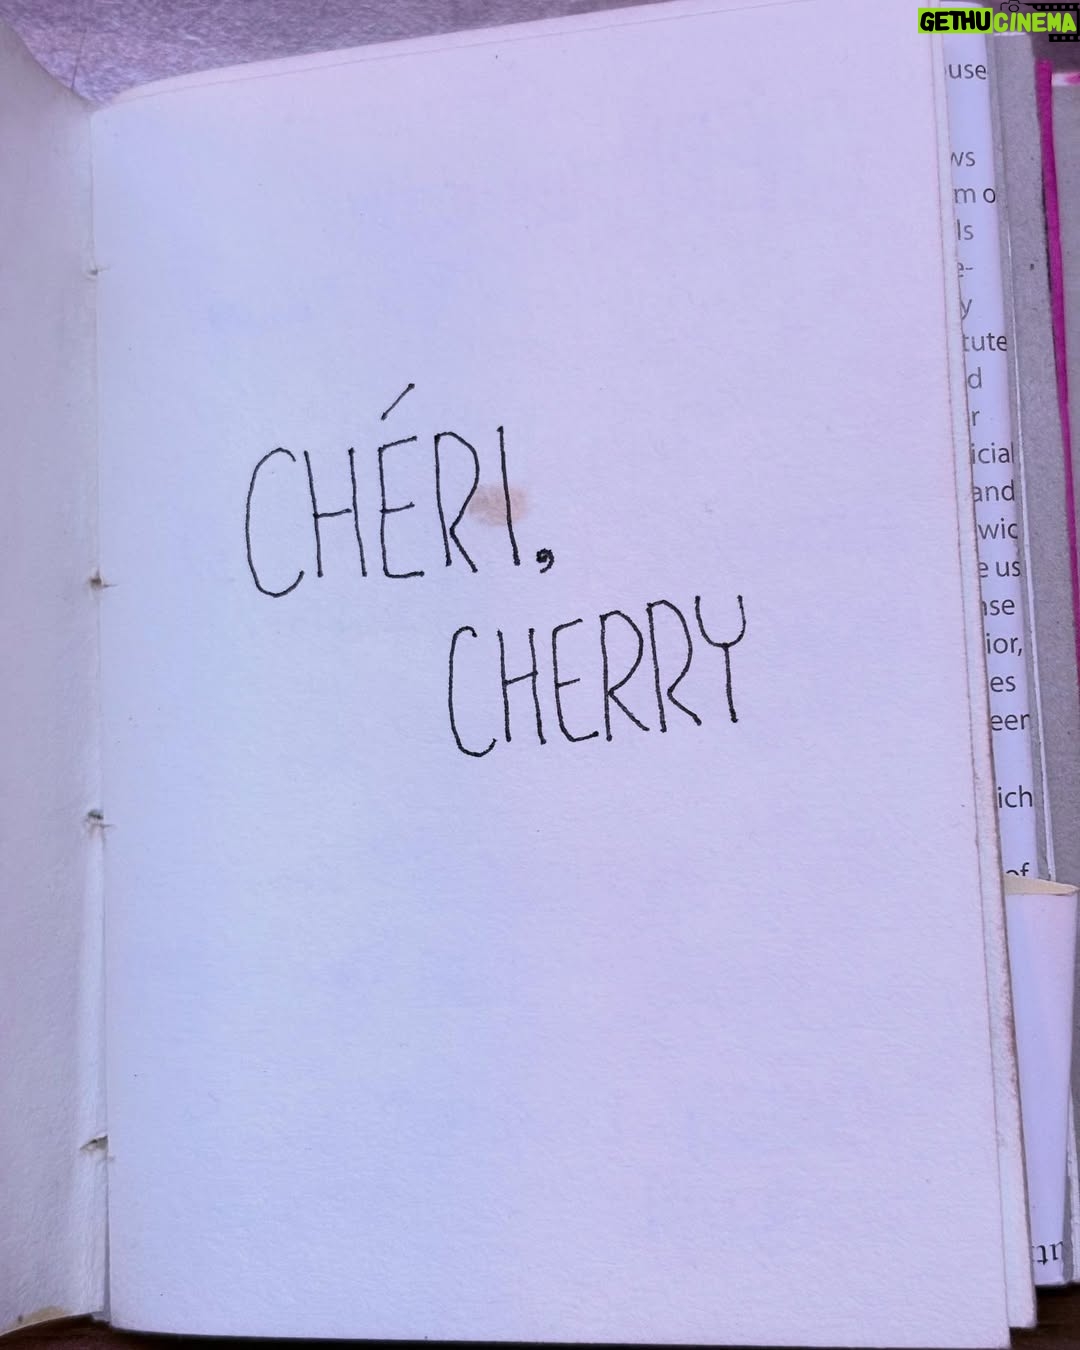 GETHUCINEMA
CHÉRI,
CHERRY
use
m o
ls
e-
y
tute
d
r
icial
and
wic
e us
nse
ior,
es
eer
ich
of